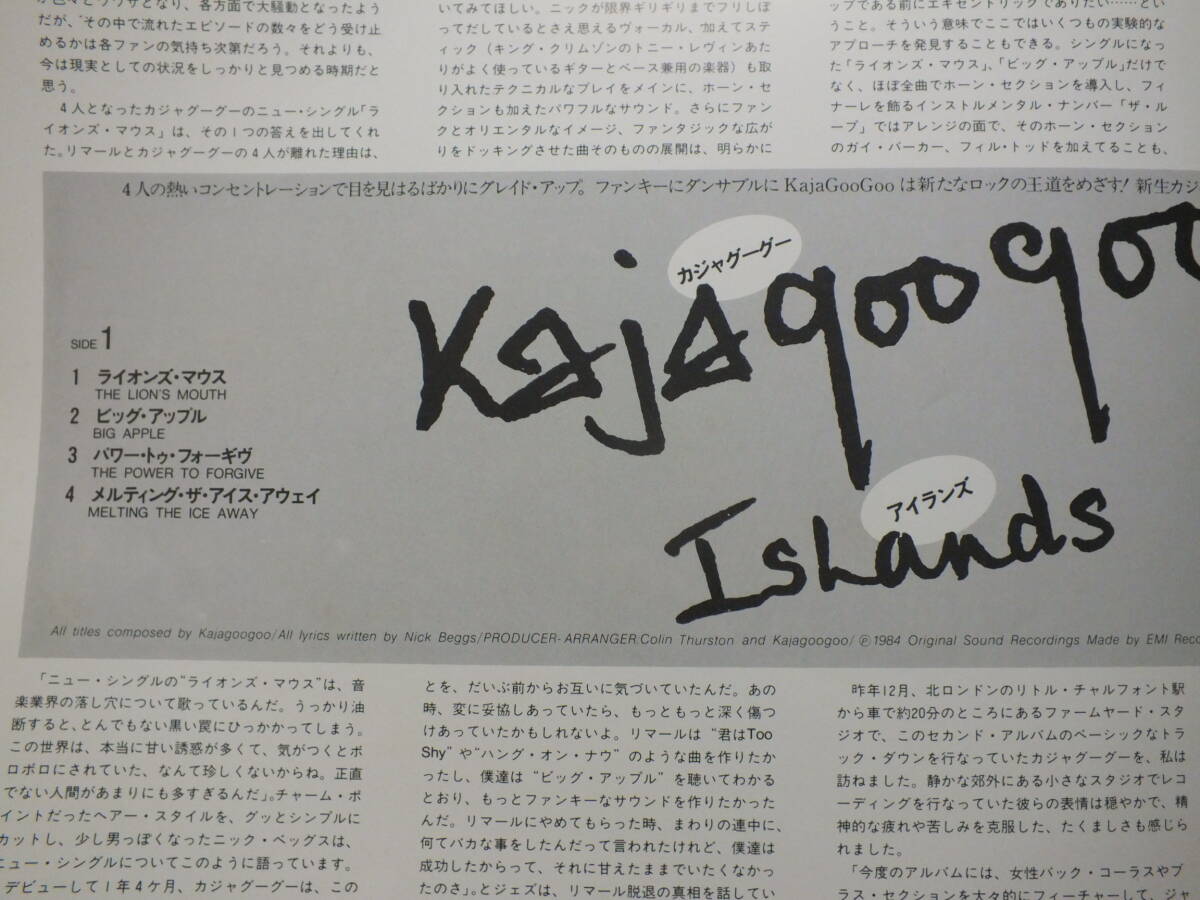 だが、その中で流れたエピソードの数々をどう受け止
めるかは各ファンの気持ち次第だろう。それよりも、
今は現実としての状況をしっかりと見つめる時期だと
思う。
4人となったカジャグーグーのニュー・シングル「ラ
イオンズ・マウス」は、その1つの答えを出してくれ
た。リマールとカジャグーグーの4人が離れた理由は、
いてみてほしい。ニックが限界ギリギリまでフリしぼ
ってだしているとさえ思えるヴォーカル、加えてステ
ィック（キング・クリムゾンのトニー・レヴィンあた
りがよく使っているギターとベース兼用の楽器）も取
り入れたテクニカルなプレイをメインに、ホーン・セ
クションも加えたパワフルなサウンド。さらにファン
クとオリエンタルなイメージ、ファンタジックな広が
りをドッキングさせた曲そのものの展開は、明らかに
ップである前にエキセントリックでありたい……とい
うこと。そういう意味でここではいくつもの実験的な
アプローチを発見することもできる。シングルになっ
た「ライオンズ・マウス」、「ビッグ・アップル」だけで
なく、ほぼ全曲でホーン・セクションを導入し、フィ
ナーレを飾るインストルメンタル・ナンバー「ザ・ル
ープ」ではアレンジの面で、そのホーン・セクション
のガイ・バーカー、フィル・トッドを加えてることも、
4人の熱いコンセントレーションで目を見はるばかりにグレイド・アップ。ファンキーにダンサブルにKajaGooGooは新たなロックの王道をめざす! 新生カジ
Kajagoogoo
カジャグーグー
Islands
アイランズ
SIDE 1
1 ライオンズ・マウス
THE LION'S MOUTH
2 ビッグ・アップル
BIG APPLE
3 パワー・トゥ・フォーギヴ
THE POWER TO FORGIVE
4 メルティング・ザ・アイス・アウェイ
MELTING THE ICE AWAY
All titles composed by Kajagoogoo/All lyrics written by Nick Beggs/PRODUCER-ARRANGER:Colin Thurston and Kajagoogoo/℗1984 Original Sound Recordings Made by EMI Reco
「ニュー・シングルの"ライオンズ・マウス"は、音
楽業界の落し穴について歌っているんだ。うっかり油
断すると、とんでもない黒い罠にひっかかってしまう。
この世界は、本当に甘い誘惑が多くて、気がつくとボ
ロボロにされていた、なんて珍しくないからね。正直
でない人間があまりにも多すぎるんだ」。チャーム・ポ
イントだったヘアー・スタイルを、グッとシンプルに
カットし、少し男っぽくなったニック・ベッグスは、
ニュー・シングルについてこのように語っています。
デビューして1年4ケ月、カジャグーグーは、この
とを、だいぶ前からお互いに気づいていたんだ。あの
時、変に妥協しあっていたら、もっともっと深く傷つ
けあっていたかもしれないよ。リマールは"君はToo
Shy"や"ハング・オン・ナウ"のような曲を作りたか
ったし、僕達は"ビッグ・アップル"を聴いてわかる
とおり、もっとファンキーなサウンドを作りたかった
んだ。リマールにやめてもらった時、まわりの連中に、
何てバカな事をしたんだって言われたけれど、僕達は
成功したからって、それに甘えたままでいたくなかっ
たのさ」。とジェズは、リマール脱退の真相を話してい
昨年12月、北ロンドンのリトル・チャルフォント駅
から車で約20分のところにあるファームヤード・スタ
ジオで、このセカンド・アルバムのベーシックなトラ
ック・ダウンを行なっていたカジャグーグーを、私は
訪ねました。静かな郊外にある小さなスタジオでレコ
ーディングを行なっていた彼らの表情は穏やかで、精
神的な疲れや苦しみを克服した、たくましさも感じら
れました。
「今度のアルバムには、女性バック・コーラスやブ
ラス・セクションを大々的にフィーチャーして、ジャ